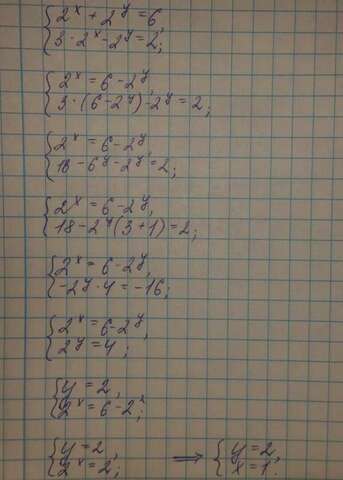 2^x + 2^y = 6,
3 · 2^x - 2^y = 2;
2^x = 6 - 2^y,
3 · (6 - 2^y) - 2^y = 2;
2^x = 6 - 2^y,
18 - 6^y - 2^y = 2;
2^x = 6 - 2^y,
18 - 2^y (3 + 1) = 2;
2^x = 6 - 2^y,
-2^y · 4 = -16;
2^x = 6 - 2^y,
2^y = 4;
y = 2,
2^x = 6 - 2^2;
y = 2, ⟹ y = 2,
2^x = 2; x = 1.